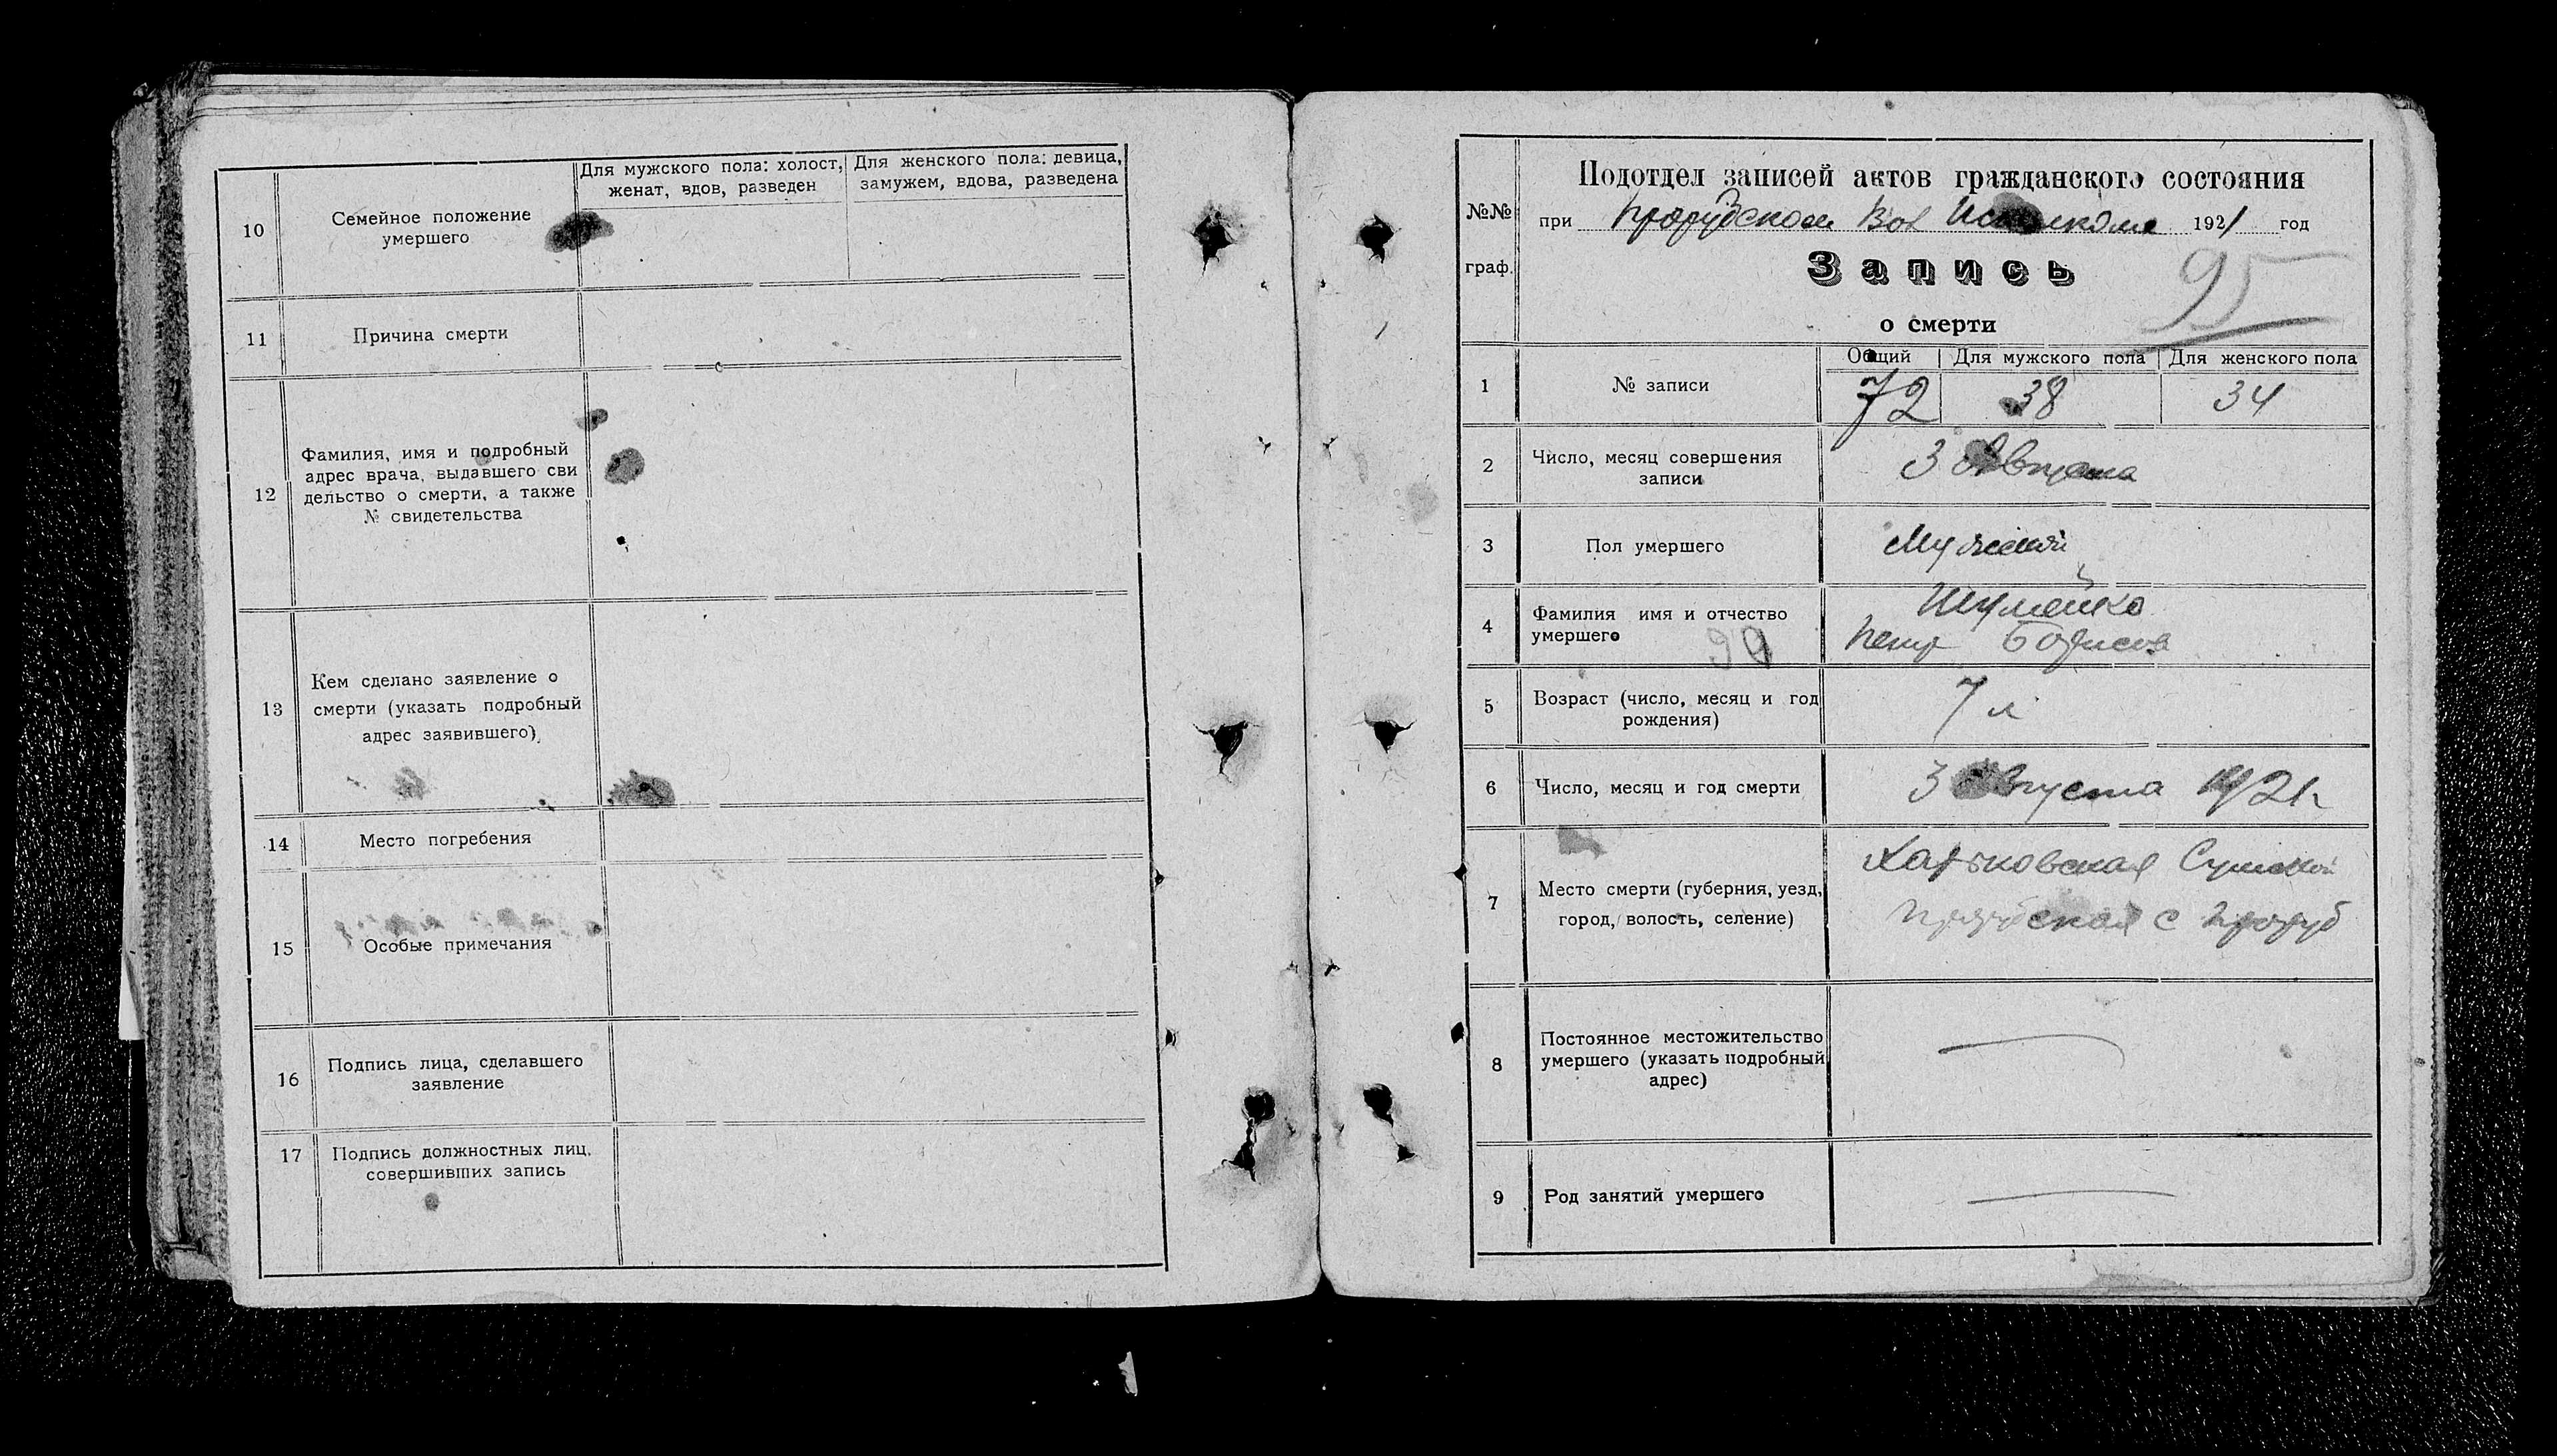 10
Семейное положение
умершего
Для мужского пола: холост,
женат, вдов, разведен
Для женского пола: девица,
замужем, вдова, разведена
11
Причина смерти
12
Фамилия, имя и подробный
адрес врача, выдавшего сви
дельство о смерти, а также
№ свидетельства
13
Кем сделано заявление о
смерти (указать подробный
адрес заявившего)
14
Место погребения
15
Особые примечания
16
Подпись лица, сделавшего
заявление
17
Подпись должностных лиц,
совершивших запись
№№
граф.
Подотдел записей актов гражданского состояния
при Прорубском Вол Исполкоме 1921 год
Запись
95
о смерти
1
№ записи
Общий
Для мужского пола
Для женского пола
72
38
34
2
Число, месяц совершения
записи
3 Августа
3
Пол умершего
Мужской
4
Фамилия имя и отчество
умершего
99
Шумейко
Петр Борисов
5
Возраст (число, месяц и год
рождения)
7 л
6
Число, месяц и год смерти
3 Августа 1921 г
7
Место смерти (губерния, уезд,
город, волость, селение)
Харьковская Сумской
Прорубская с Проруб
8
Постоянное местожительство
умершего (указать подробный
адрес)
9
Род занятий умершего